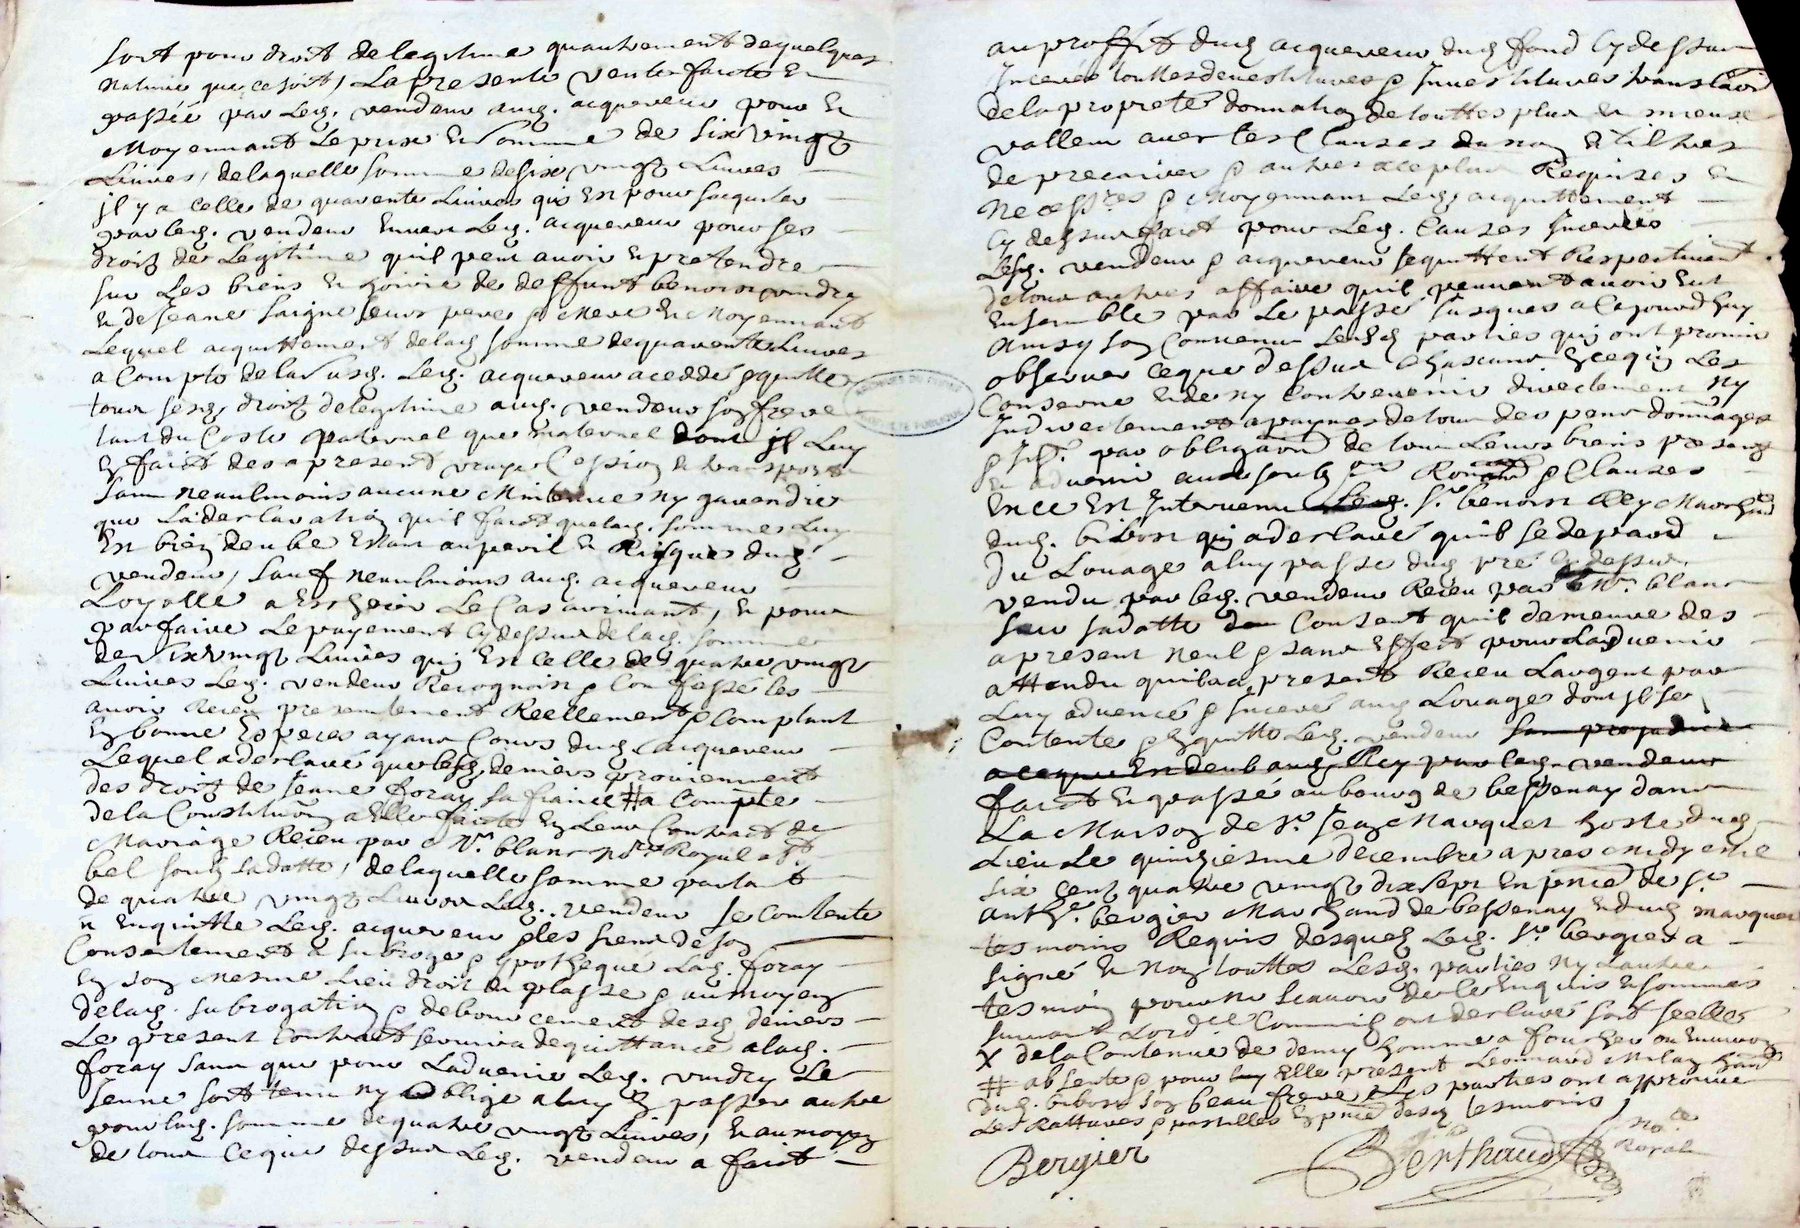 soit pour droit de legitime quautrement de quelques
natures que ce soitt, La presente vente faicte Et
passée par Led. vendeur aud. acquereur pour Et
Moyennant Le prix Et somme de six vingt
Livres, de laquelle somme de six vingt Livres
jl y a celle de quarente Livres qui Est pour sacquitter
par led. vendeur Envers Led. acquereur pour ses
droitz de Legitime quil peut avoir Et pretendre
sur Les biens Et hoirie de deffunt benoist vindry
Et de Jeane saigne Leurs pere & Mere Et Moyennant
Lequel acquittement de lad. somme de quarente Livres
a Compte de la susd. Led. acquereur a ceddé & quitté
tous sesd. droitz de legitime aud. vendeur son frere
tant du Costé paternel que maternel dont jl Luy
En faict des a present vraye Cession & transport
sans neaulmoins aucune Maintenue ny garendie
que La declaration quil faict que lad. somme Luy
Est bien deube Estant au peril & Risques dud.
vendeur, sauf neaulmoins aud. acquereur
Loyalle a Escheoir Le Cas arrivant, Et pour
parfaire Le payement Cy dessus de lad. somme
de six vingt Livres qui Est celle de quatre vingt
Livres Led. vendeur Recognoist & Confesse les
avoir Receu presentement Reellement & Comptant
En bonne Especes ayant Cours dud. acquereur
Lequel a declaré que lesd. deniers proviennent
des droitz de Jeane foray sa fiancé # a Compte
de la Constitution a Elle faicte En Leur Contract de
Mariage Receu par Me. blanc no.re Royal
bel soubz sa datte, de laquelle somme partant
de quatre vingt Livres Led. vendeur se Contente
Et En quitte Led. acquereur & les siens de son
Consentement a subrogé & ypothequé Lad. foray
En son mesme Lieu droit Et plasse & au moyen
de lad. subrogation & deboursement desd. deniers
Le present Contract servira de quittance a lad.
foray sans que pour Ladvenir Led. vindry Le
Jeune soit tenu ny oblige a luy En passer autre
pour lad. somme de quatre vingt Livres, Et au moyen
de tout Ceque dessus Led. vendeur a faict
au proffit dud. acquereur dud. fond Cy dessus
Inceré touttes devestitures & Investitures translation
de la propreté donnation de touttes plus Et mieux
valleur avec les Clauses du nom Et tiltres
de precaires & autres a ce plus Requises Et
necess.res & Moyennant Led. acquittement
Cy dessus faict pour Les Causes Incerées
Lesd. vendeur & acquereur se quittent Respectivement
de tous autres affaire quil peuvent avoir Eut
Ensemble par Le passé Jusques a Ce jourdhuy
Ainsy son Convenu Lesd. parties qui ont promis
observer Ceque dessus Chascune En ce qui Les
Conserne Et de ny Contrevenir directement ny
Indirectement a paynes de tous despens dommages
& Ints. par obligaon de tous Leurs biens presentz
Et advenir aux soubz on Renon & Clauses
En ce Est Intervenu Led. Sr. benoist Rey Marchand
dud. bibost qui a declaré quil se depard
du Louage a luy passé dud. pré Cy dessus
vendu par led. vendeur Receu par Me. blanc
sur sa datte Consent quil demeure des
a present nul & sans Effect pour Ladvenir
attendu quil a a present Receu Largent par
Luy advencé & Inceré aud. Louage dont jl se
Contente & En quitte Led. vendeur sans prejudice
a ceque Est deub aud. Rey par led. vendeur
faict Et passé au bourg de bessenay dans
La Maison de Sr. Jean Marquet hoste dud.
Lieu Le quinziesme decembre apres Midy mil
six cent quatre vingt dix sept En pnce de Sr.
anth.e bergier Marchand de bessenay Et dud. Marquet
tesmoins Requis desquels Led. Sr. bergier a
signé Et non touttes Lesd. parties ny Lautre
tesmoin pour ne scavoir de ce Enquis Et sommes
suivant Lord.ce Commis ont declaré soit scellé
X de la Contenue de demy homme a faucher ou Environ
# absente & pour luy Elle present Leonard Milan
dud. bibost son beau frere & Les parties ont approuvé
Les Rattures & postilles En pnce desd. tesmoins
Bergier
Berthaud
no.re
Royal